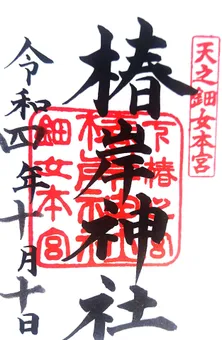 天之鈿女本宮
椿岸神社
令和四年十月十日
鈿女本宮
椿岸神社